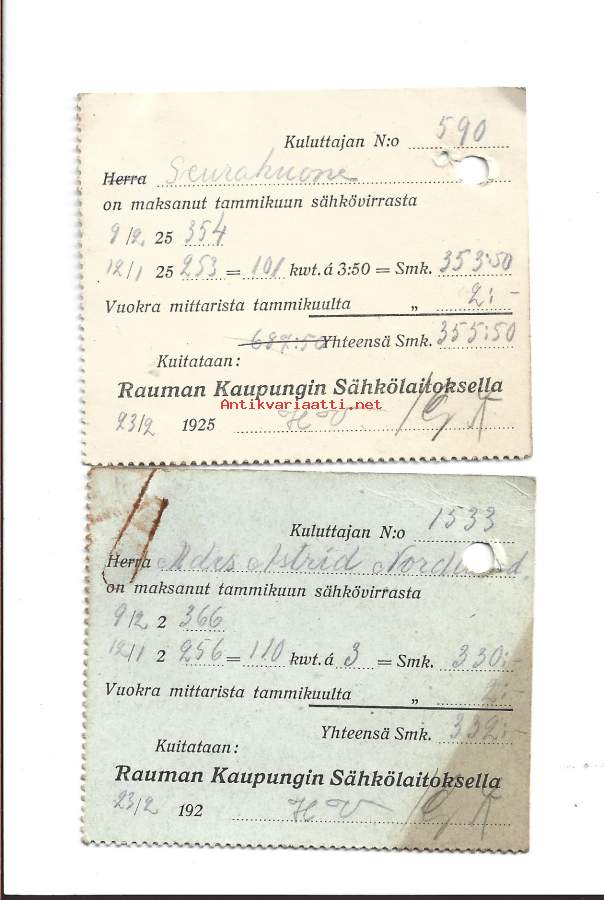 Kuluttajan N:o 590
Herra Seurahuone
on maksanut tammikuun sähkövirrasta
9/2 25 354
12/1 25 253 = 101 kwt. á 3:50 = Smk. 353:50
Vuokra mittarista tammikuulta „ 2:-
687:50 Yhteensä Smk. 355:50
Kuitataan:
Rauman Kaupungin Sähkölaitoksella
Antikvariaatti.net
23/2 1925 H V
Kuluttajan N:o 1533
Herra Astrid
on maksanut tammikuun sähkövirrasta
9/2 2 366
12/1 2 256 = 110 kwt. á 3 = Smk. 330:-
Vuokra mittarista tammikuulta „ 2:-
Yhteensä Smk. 332:-
Kuitataan:
Rauman Kaupungin Sähkölaitoksella
23/2 192 H V